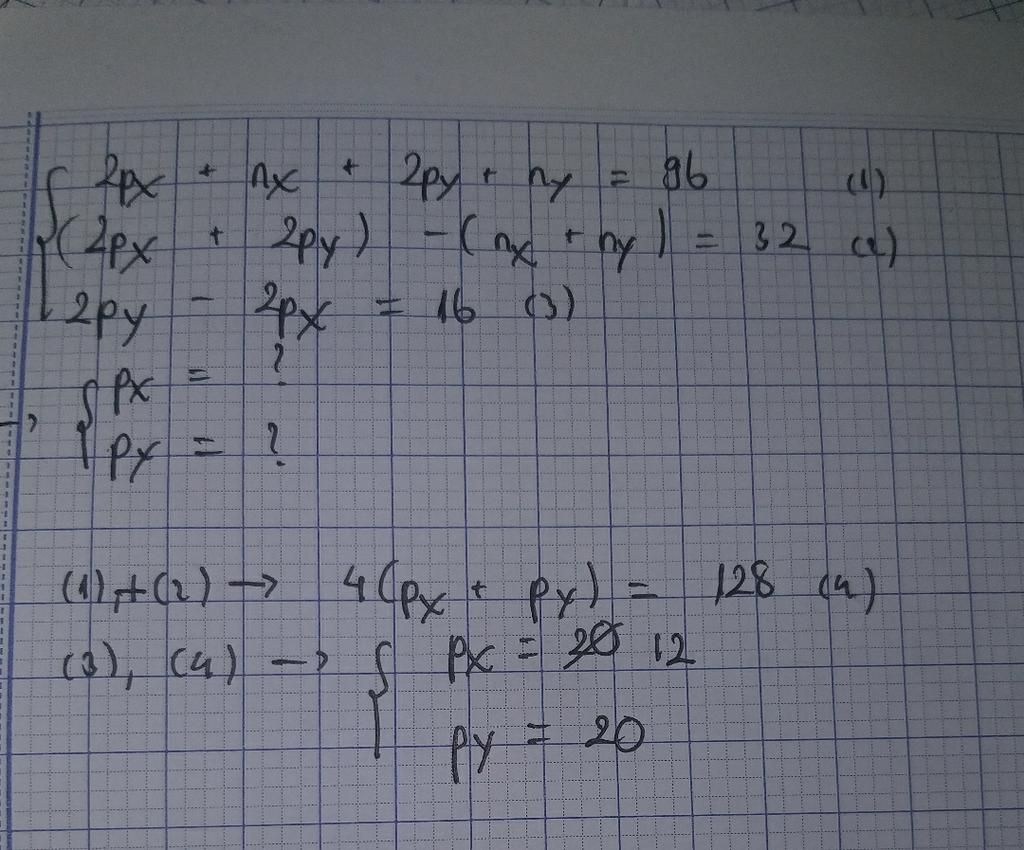 2px + nx + 2py + ny = 96 (1)
(2px + 2py) - (nx + ny) = 32 (2)
2py - 2px = 16 (3)
px = ?
→ py = ?
(1)+(2) → 4(px + py) = 128 (4)
(3), (4) → px = 20 12
py = 20